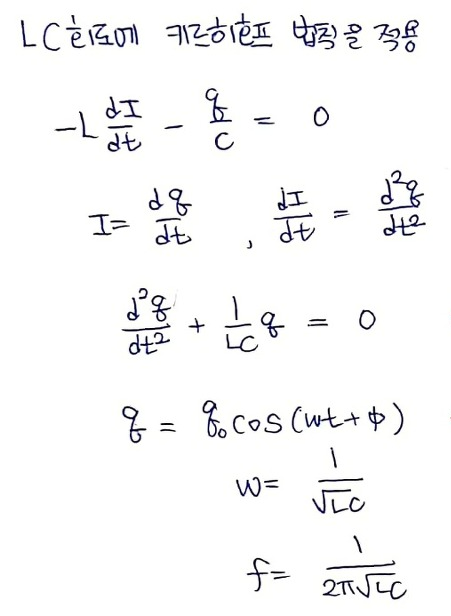 LC회로에 키르히호프 법칙을 적용
-L dI/dt - q/C = 0
I = dq/dt , dI/dt = d²q/dt²
d²q/dt² + 1/LC q = 0
q = q₀ cos(wt + φ)
w = 1/√LC
f = 1/2π√LC